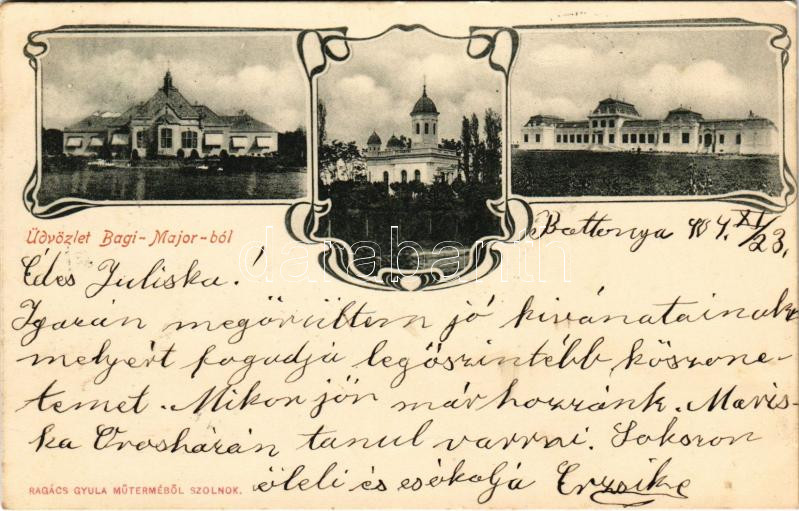 Üdvözlet Bagi-Major-ból
Battonya 904. XI/23.
Édes Juliska!
Igazán megörültem jó kivánatainak
melyért fogadja legöszintébb köszöne-
temet. Mikor jön már hozzánk. Maris-
ka Orosházán tanul varrni. Sokszor
öleli és csókolja Erzsike
RAGÁCS GYULA MŰTERMÉBŐL SZOLNOK.
darabanth.com